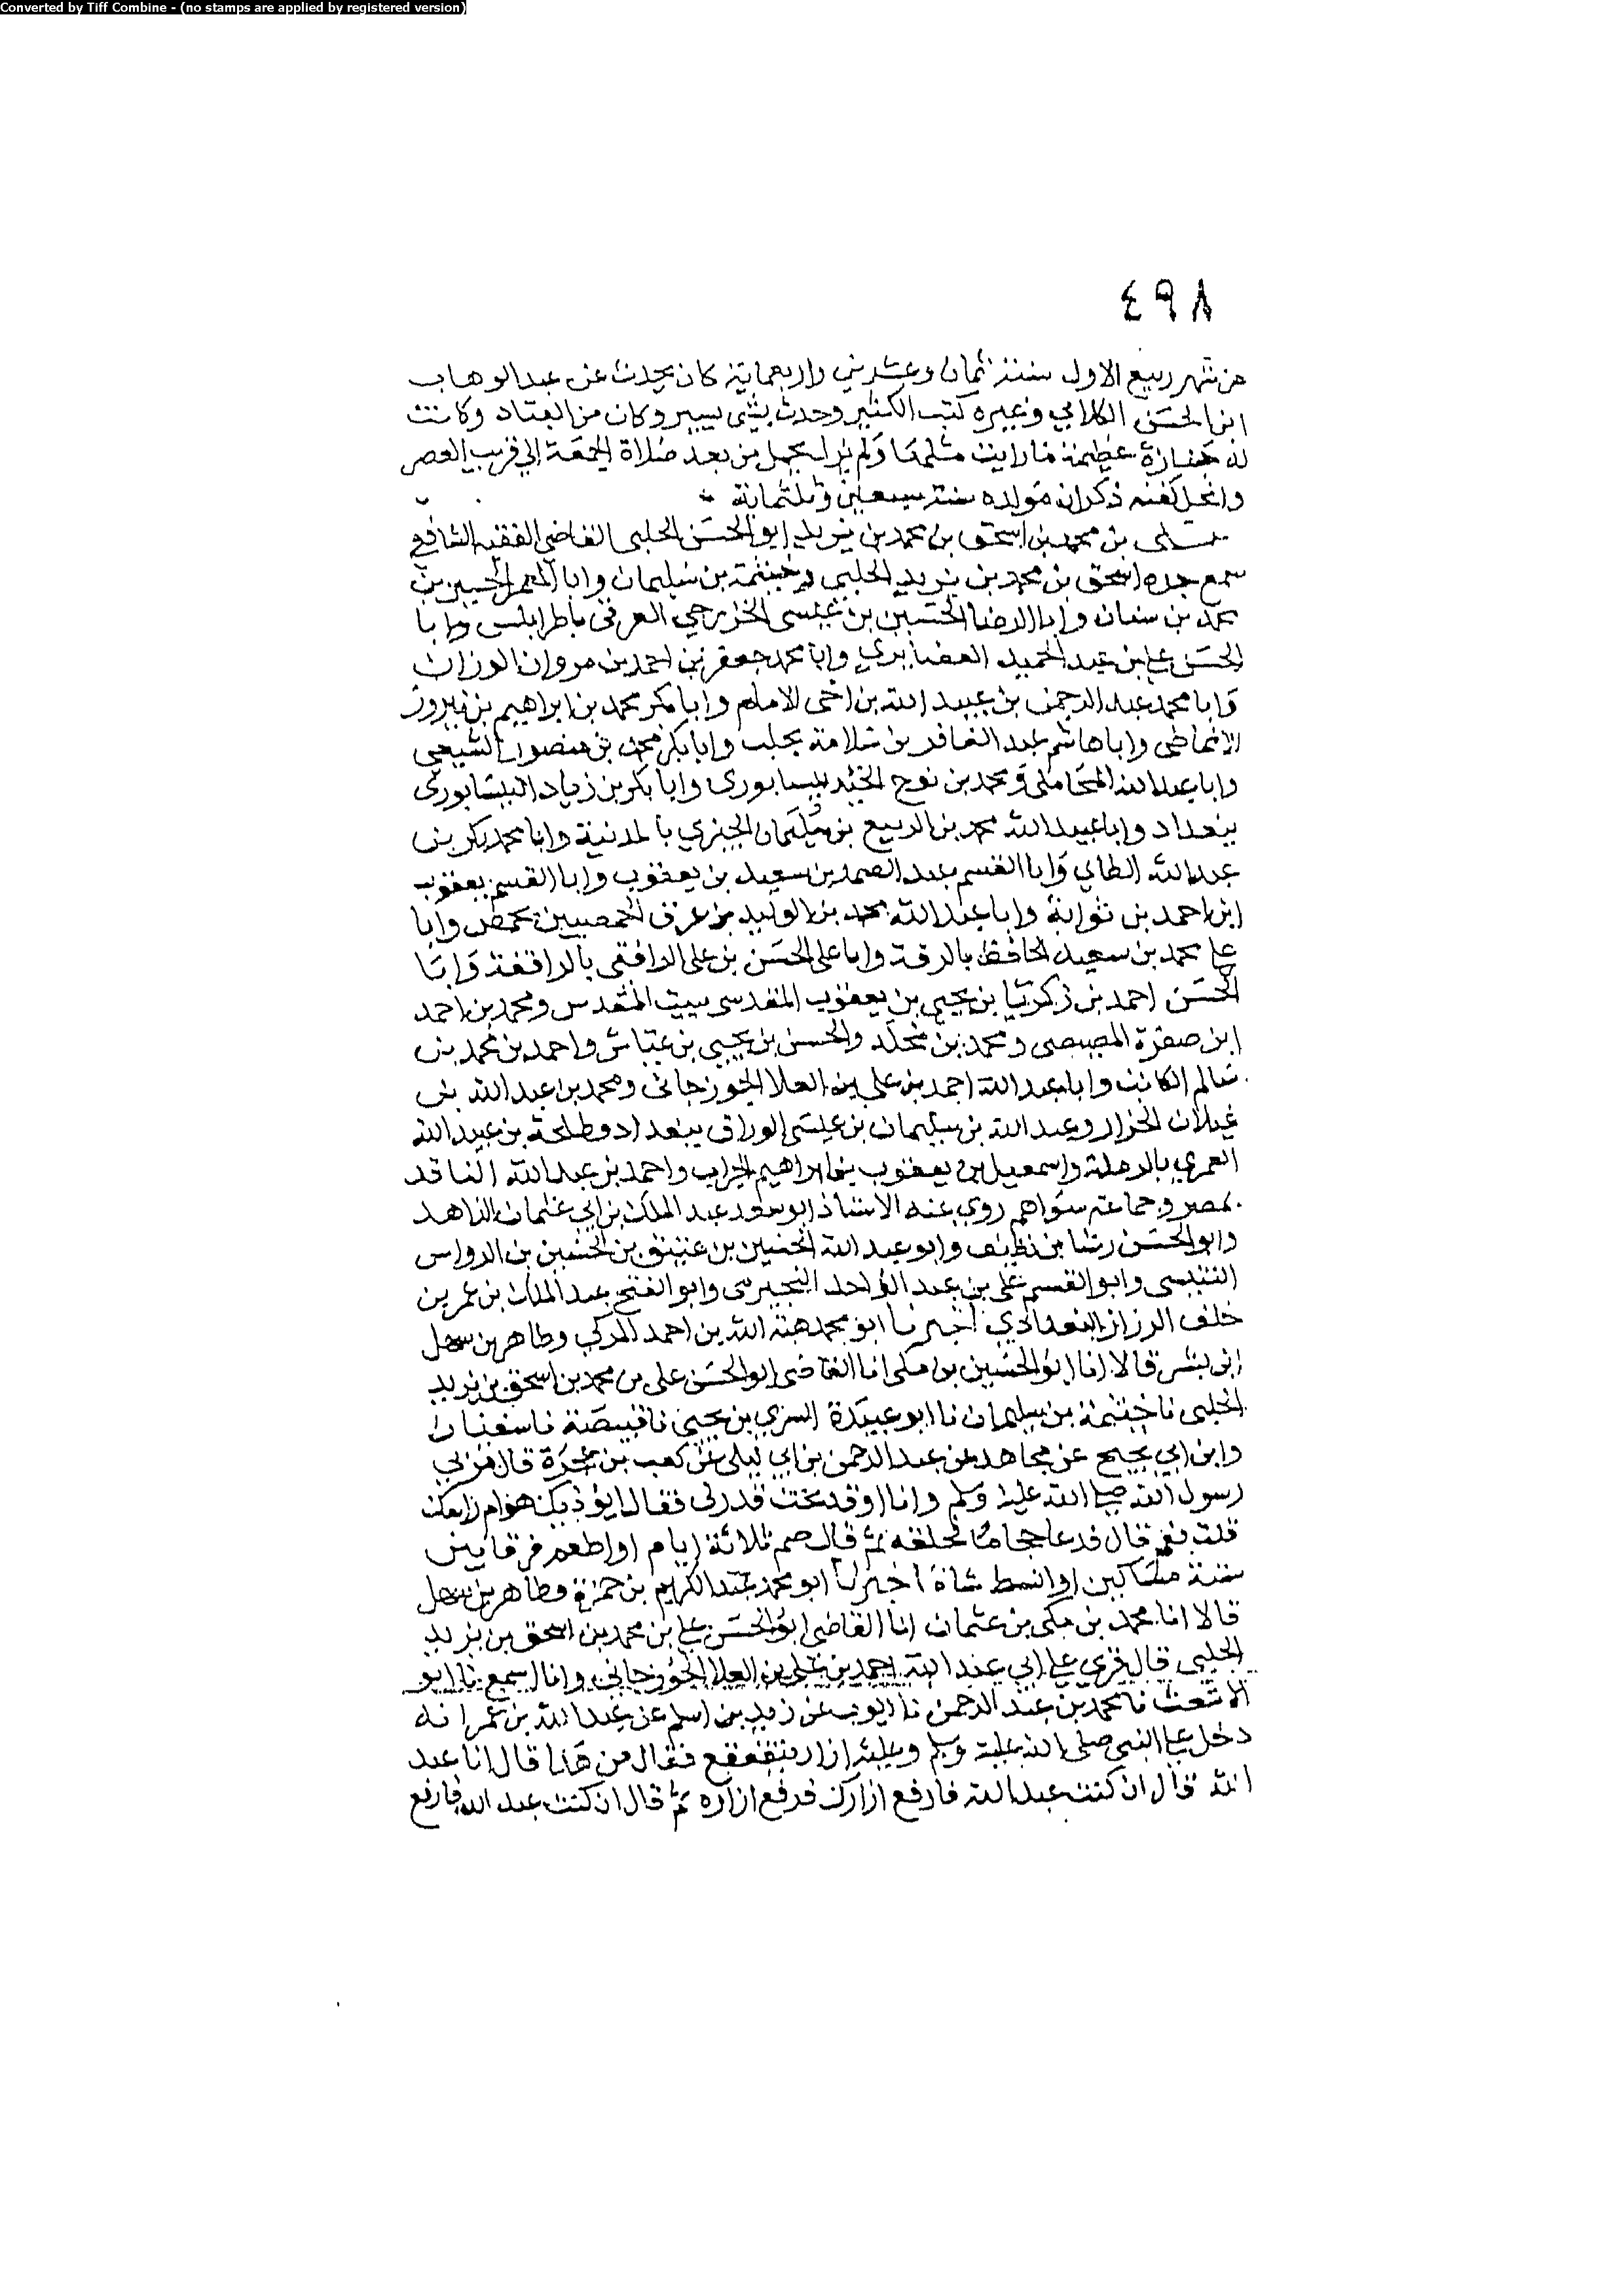 Converted by Tiff Combine - (no stamps are applied by registered version)
٤٩٨
من شهر ربيع الاول سنة ثمان وعشرين واربعماية كان يحدث عن عبد الوهاب
ابن الحسن الكلابي وغيره كتب الكثير وحدث بشي يسير وكان من العباد وكانت
له جنازة عظيمة ما رايت مثلها ولم يزل يحمل من بعد صلاة الجمعة الى قريب العصر
وانحل كفنه ذكر ان مولده سنة سبعين وثلثماية
علي بن محمد بن اسحق بن محمد بن يزيد ابو الحسن الحلبي القاضي الفقيه الشافعي
سمع جده اسحق بن محمد بن يزيد الحلبي وخيثمة بن سليمان وابا المعمر الحسين بن
محمد بن سنان وابا الرضا الحسين بن عيسى الخزرجي العرقي باطرابلس وابا
الحسن علي بن عبد الحميد الغضايري وابا محمد جعفر بن احمد بن مروان الوزان
وابا محمد عبد الرحمن بن عبيد الله بن اخي الامام وابا بكر محمد بن ابراهيم بن نيروز
الانماطي وابا هاشم عبد الغافر بن سلامة بحلب وابا بكر محمد بن منصور الشيعي
وابا عبد الله المحاملي ومحمد بن نوح الجنديسابوري وابا بكر بن زياد النيسابوري
ببغداد وابا عبيد الله محمد بن الربيع بن سليمان الجيزي بالمدينة وابا محمد بكر بن
عبد الله الطاي وابا القسم عبد الصمد بن سعيد بن يعقوب وابا القسم يعقوب
ابن احمد بن ثوابة وابا عبد الله محمد بن الوليد بن عرق الحمصيين بحمص وابا
علي محمد بن سعيد الحافظ بالرقة وابا علي الحسن بن علي الرافقي بالرافقة وابا
الحسن احمد بن زكريا بن يحيى بن يعقوب المقدسي ببيت المقدس ومحمد بن احمد
ابن صفرة المصيصي ومحمد بن مخلد والحسن بن يحيى بن عياش واحمد بن محمد بن
سالم الكاتب وابا عبد الله احمد بن علي بن العلا الجوزجاني ومحمد بن عبد الله بن
غيلان الخزاز وعبد الله بن سليمان بن عيسى الوراق ببغداد وطلحة بن عبيد الله
العمري بالرملة واسمعيل بن يعقوب بن ابراهيم الجراب واحمد بن عبد الله الناقد
بمصر وجماعة سواهم روى عنه الاستاذ ابو سعد عبد الملك بن ابي عثمان الزاهد
وابو الحسن رشا بن نظيف وابو عبد الله الحسين بن عتيق بن الحسين بن الرواس
التنيسي وابو القسم علي بن عبد الواحد النجيرمي وابو الفتح عبد الملك بن عمر بن
خلف الرزاز البغدادي اخبرنا ابو محمد هبة الله بن احمد المزكي وطاهر بن سهل
ابن بشر قالا انا ابو الحسين بن مكي انا القاضي ابو الحسن علي بن محمد بن اسحق بن يزيد
الحلبي نا خيثمة بن سليمان نا ابو عبيدة السري بن يحيى نا قبيصة نا سفيان
وابن ابي نجيح عن مجاهد عن عبد الرحمن بن ابي ليلى عن كعب بن عجرة قال مر بي
رسول الله صلى الله عليه وسلم وانا اوقد تحت قدر لي فقال ايؤذيك هوام راسك
قلت نعم قال فدعا حجاما فحلقه ثم قال صم ثلاثة ايام او اطعم فرقا بين
ستة مساكين او انسك شاة اخبرنا ابو محمد عبد الكريم بن حمزة وطاهر بن سهل
قالا انا محمد بن مكي بن عثمان انا القاضي ابو الحسن علي بن محمد بن اسحق بن يزيد
الحلبي قال قري على ابي عبد الله احمد بن علي بن العلا الجوزجاني وانا اسمع نا ابو
الاشعث نا محمد بن عبد الرحمن نا ايوب عن زيد بن اسلم عن عبد الله بن عمر انه
دخل على النبي صلى الله عليه وسلم وعليه ازار يتقعقع فقال من هذا قال انا عبد
الله قال ان كنت عبد الله فارفع ازارك فرفع ازاره ثم قال ان كنت عبد الله فارفع